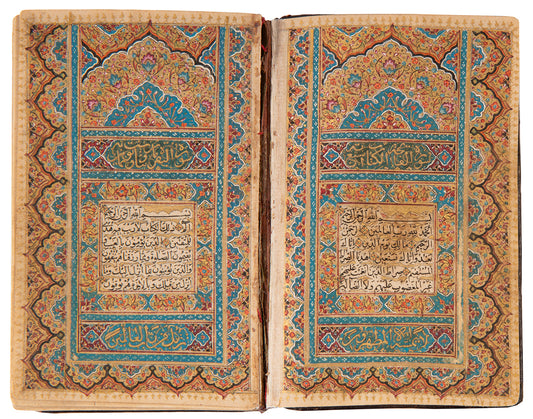 بسم الله الرحمن الرحيم
الحمد لله رب العالمين الرحمن
الرحيم مالك يوم الدين اياك
نعبد واياك نستعين اهدنا الصراط
المستقيم صراط الذين انعمت عليهم
غير المغضوب عليهم ولا الضالين
لا يمسه الا المطهرون
بسم الله الرحمن الرحيم
الم ذلك الكتاب لا ريب فيه هدى
للمتقين الذين يؤمنون بالغيب
ويقيمون الصلوة ومما رزقناهم
ينفقون والذين يؤمنون بما انزل اليك وما
انزل من قبلك وبالاخرة هم يوقنون
تنزيل من رب العالمين